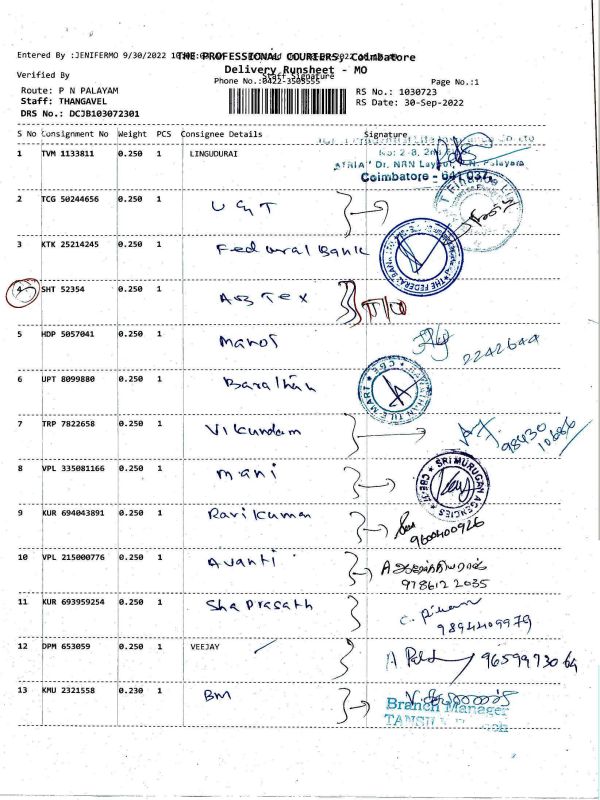 Entered By :JENIFERMO 9/30/2022
THE PROFESSIONAL COURIERS, Coimbatore
Delivery Runsheet - MO
Verified By
Staff Signature
Phone No.:0422-3505555
Page No.:1
Route: P N PALAYAM
RS No.: 1030723
Staff: THANGAVEL
RS Date: 30-Sep-2022
DRS No.: DCJB103072301
S No Consignment No Weight PCS Consignee Details Signature
1 TVM 1133811 0.250 1 LINGUDURAI
No: 2-8, 2nd
"ATRIA" Dr. NRN Layout, P.N. Palayam
Coimbatore - 641 037.
2 TCG 50244656 0.250 1 UGT
3 KTK 25214245 0.250 1 Federal Bank
THE FEDERAL BANK
4 SHT 52354 0.250 1 AB Tex
5 HDP 5057041 0.250 1 Manoj
2242644
6 UPT 8099880 0.250 1 Barathan
7 TRP 7822658 0.250 1 Vikundam
98430
10886
8 VPL 335081166 0.250 1 mani
SRI MURUGAN AGENCIES
9 KUR 694043891 0.250 1 Ravi Kumar
9600400926
10 VPL 215000776 0.250 1 Avanti
9786122035
11 KUR 693959254 0.250 1 Sha Prasath
9894409979
12 DPM 653059 0.250 1 VEEJAY
13 KMU 2321558 0.230 1 BM
Branch Manager